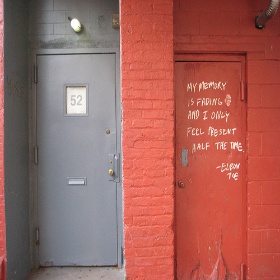 52
MY MEMORY
IS FADING
AND I ONLY
FEEL PRESENT
HALF THE TIME.